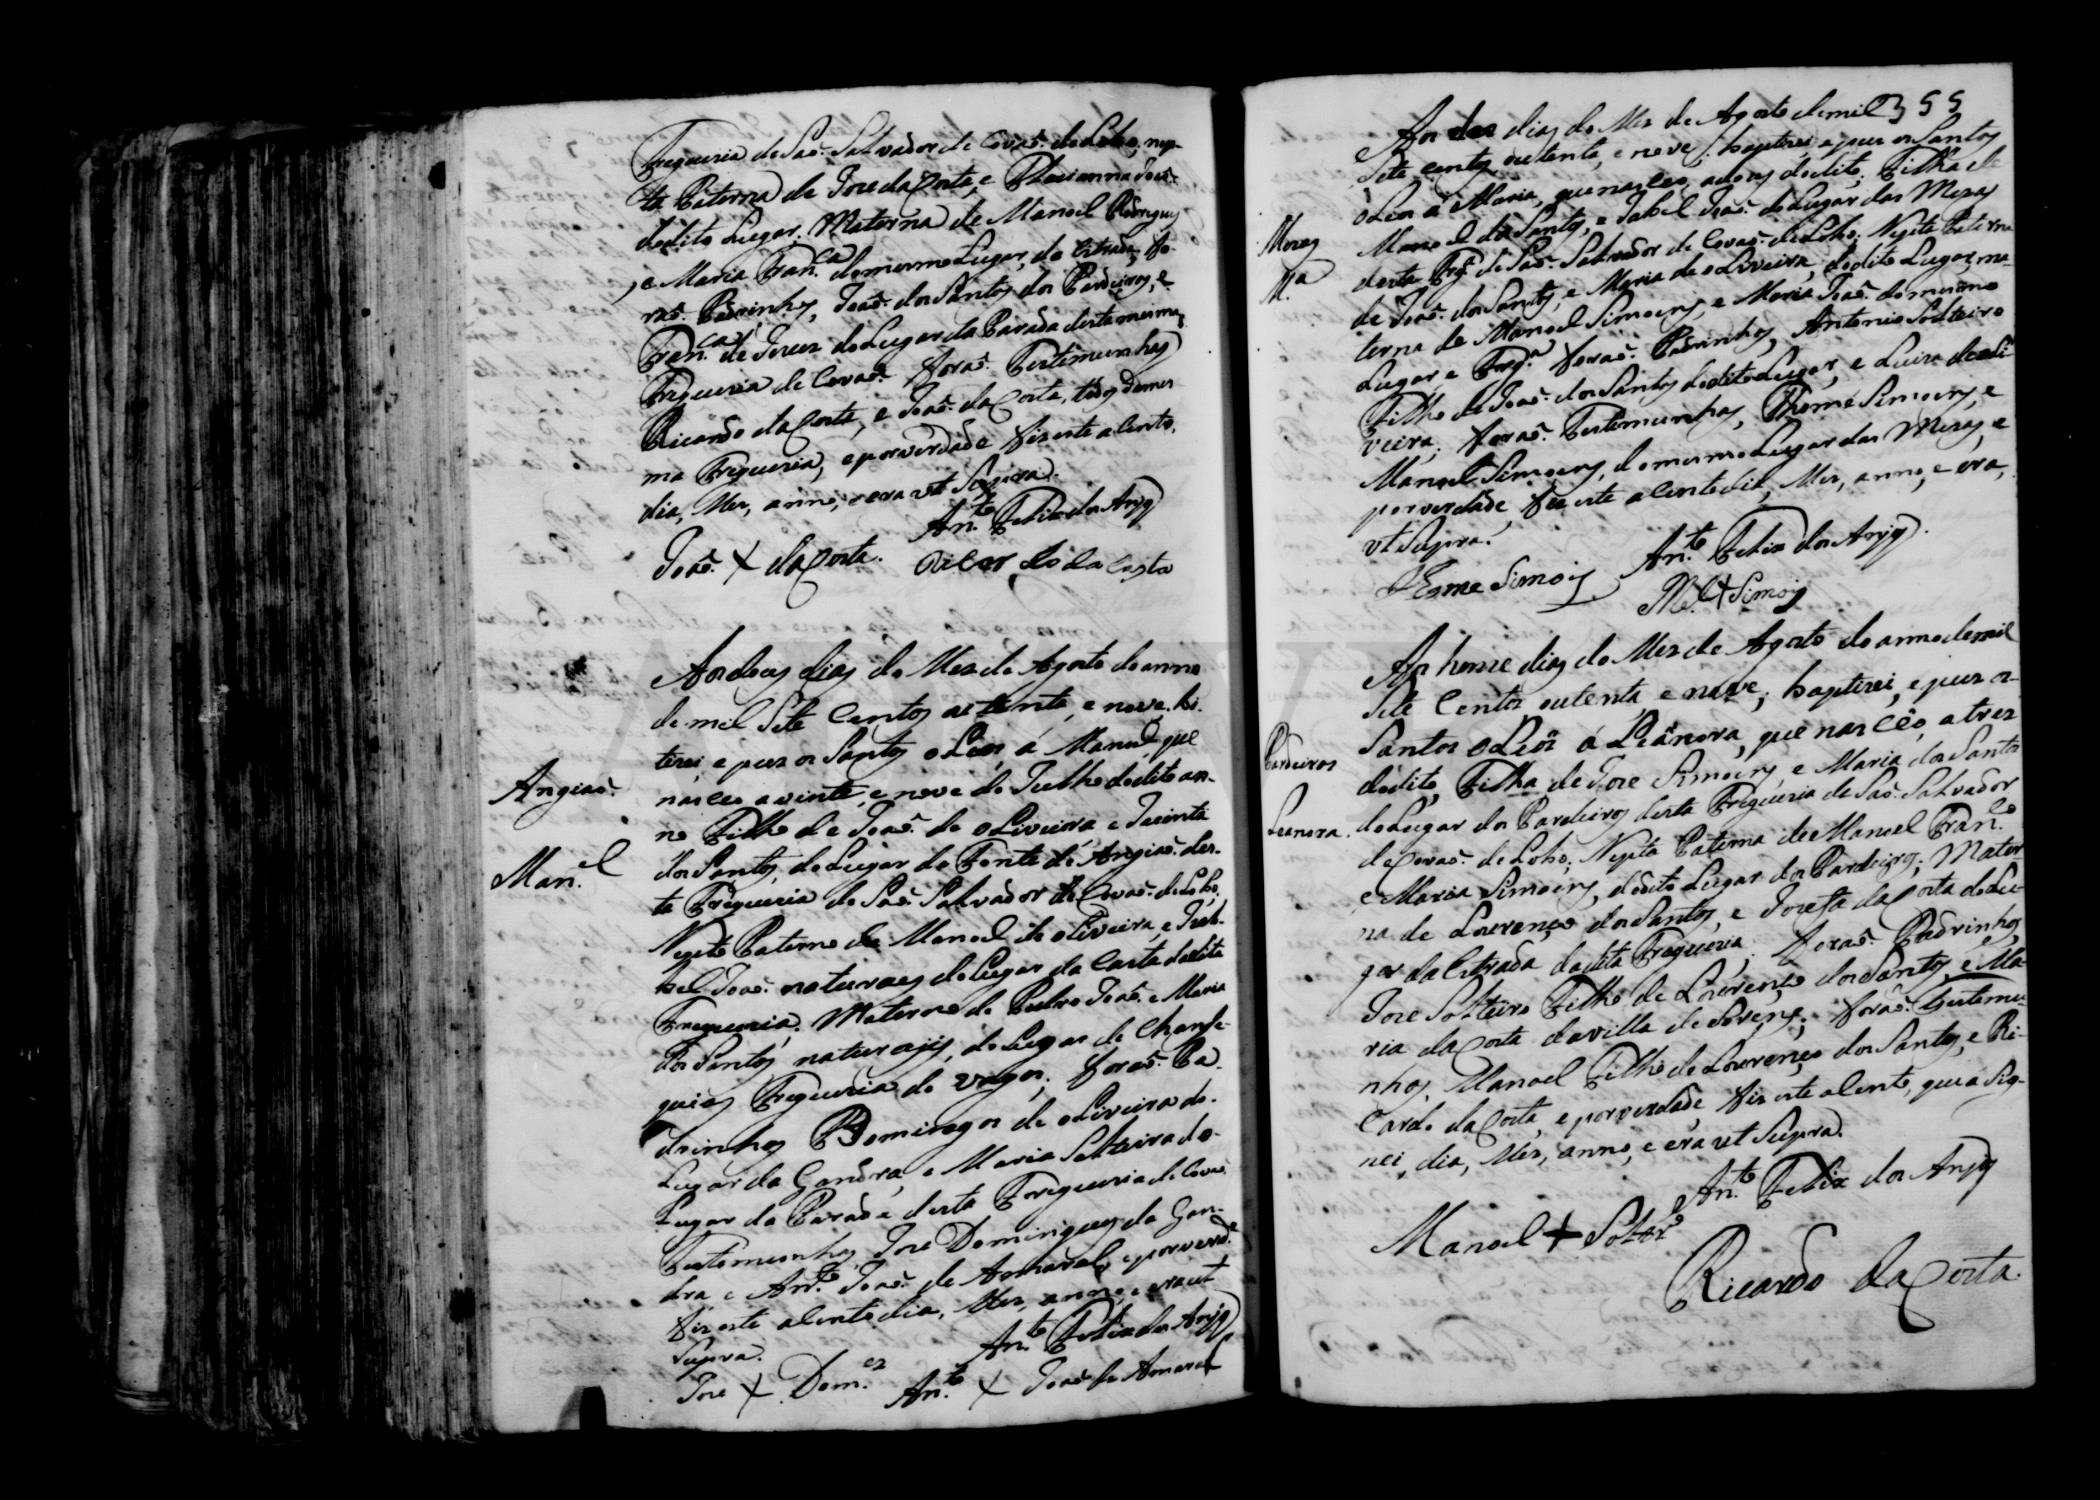 Freguezia de Saõ. Salvador de Covaõ. do Lobo, nep-
ta Paterna de Jose da Costa, e Marianna Joaõ.
do dito Lugar; Materna de Manoel Rodrigues
, e Maria Fran.ca do mesmo Lugar, da Estrada, fo-
raõ. Padrinhos, Joaõ. dos Santos dos Pardeiros, e
Fran.ca de Jesus do Lugar da Parada desta mesma
Freguezia de Covaõ. foraõ. Testimunhas
Ricardo da Costa, e Joaõ. da Costa, todos da mes
ma Freguezia, e por verdade fiz este acento,
dia, Mes, anno, e era ut Supra.
An.to Felix dos Anjos
Joaõ. X da Costa. Ricardo da Costa
Aos dous dias do Mes de Agosto do anno
de mil Sete Centos outenta, e nove, bá-
tizei, e puz os Santos oLeos á Manoel, que
Angiaõ.
nasceo a vinte, e nove de Julho do dito an-
no Filho de Joaõ. de oLiveira e Jacinta
Man.el
dos Santos, do Lugar da Fonte de Angiaõ. des-
ta Freguezia de Saõ. Salvador de Covaõ. do Lobo,
Nepto Paterno de Manoel de oLiveira, e Iza-
bel Joaõ. naturaes do Lugar da Costa da dita
Freguezia, Materno de Pedro Joaõ. e Maria
dos Santos, naturais, do Lugar de
Freguezia de Vagos; foraõ. Pa-
drinhos Domingos de oLiveira do
Lugar da Gandra, e Maria Solteira do
Lugar da Parada desta Freguezia de Covaõ.
Testemunhas, Jose Domingues da Gan-
dra e Ant.o Joaõ. de Amaral, e por verd.e
fiz este acento dia, Mes, anno, e era ut
Supra.
An.to Felix dos Anjos
Jose X Dom.es An.to X Joaõ de Amaral
355
Aos dias do Mes de Agosto de mil
Sete centos outenta, e nove, baptizei, e puz os Santos
oLeos á Maria, que nasceo, a do dito, Filha de
Mezas
Manoel dos Santos, e Izabel Joaõ. do Lugar das Mezas
M.a
desta Frg.a de Saõ. Salvador de Covaõ. do Lobo; Nepta Paterna
de Joaõ. dos Santos, e Maria de oLiveira, do dito Lugar, ma-
terna de Manoel Simoens, e Maria Joaõ. do mesmo
Lugar, e Frg.a foraõ. Padrinhos, Antonio Solteiro
Filho de Joaõ. dos Santos do dito Lugar, e Luiza de oLi-
veira; foraõ. Testimunhas, Thomé Simoens, e
Manoel Simoens, do mesmo Lugar das Mezas, e
por verdade fiz este acento dia, Mes, anno, e era,
ut Supra.
An.to Felix dos Anjos.
Thome Simois
M.el X Simois
Aos honze dias do Mes de Agosto do anno de mil
Sete Centos outenta, e nove; baptizei, e puz os
Santos oLeos á Leanora, que nasceo, a tres
Pardeiros
do dito, Filha de Jose Simoens, e Maria dos Santos
Leanora.
do Lugar dos Pardeiros desta Freguezia de Saõ. Salvador
de Covaõ. do Lobo; Nepta Paterna de Manoel Fran.co
e Maria Simoens, do dito Lugar dos Pardeiros; Mater-
na de Lourenço dos Santos, e Josefa da Costa do Lu-
gar da Estrada da dita Freguezia; foraõ. Padrinhos,
Jose Solteiro Filho de Lourenço dos Santos, e Ma-
ria da Costa da villa de Soreng; foraõ. testemu-
nhas, Manoel Filho de Lourenço dos Santos, e Ri-
cardo da Costa, e por verdade fiz este acento, que asig-
nei, dia, Mes, anno, e era ut Supra.
An.to Felix dos Anjos
Manoel X Solt.ro
Ricardo da Costa.